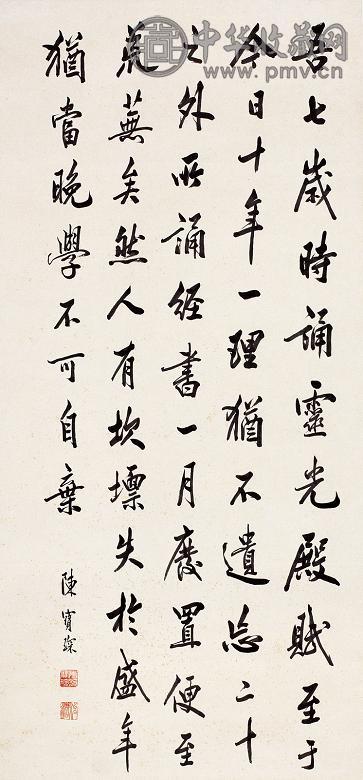 中华收藏网
www.pmv.cn
吾七歲時誦靈光殿賦至于
今日十年一理猶不遺忘二十
之外所誦經書一月廢置便至
荒蕪矣然人有坎壈失於盛年
猶當晚學不可自棄
陳寶琛